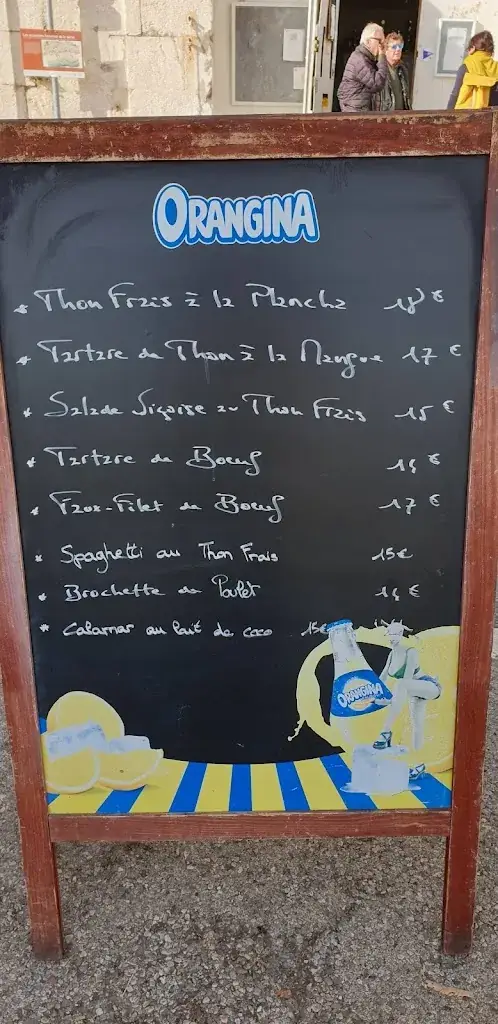 ORANGINA
* Thon Frais à la Plancha 18 €
* Tartare de Thon à la Mangue 17 €
* Salade Niçoise au Thon Frais 15 €
* Tartare de Boeuf 14 €
* Faux-Filet de Boeuf 17 €
* Spaghetti au Thon Frais 15 €
* Brochette de Poulet 14 €
* Calamar au lait de coco 15 €
ORANGINA